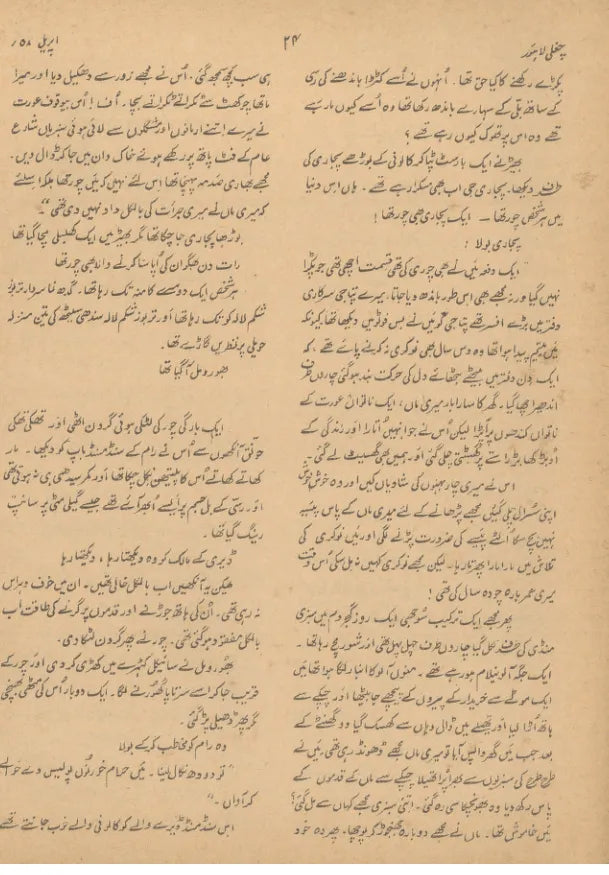 چغلی لاہور
۲۴
اپریل ۵۸ء
پکڑے رکھنے کا کیا حق تھا۔ اُنہوں نے اُسے کٹڑا باندھنے کی رسی
کے ساتھ بلی کے سہارے باندھ رکھا تھا وہ اُسے کیوں مار رہے
تھے وہ اس پر تھوک کیوں رہے تھے؟
بھیڑ نے ایک بار سمٹ سمٹا کر کالونی کے بوڑھے پجاری کی
طرف دیکھا۔ پجاری جی اب بھی مسکرا رہے تھے۔ ہاں اس دنیا
میں ہر شخص چور تھا — ایک پجاری بھی چور تھا!
پجاری بولا :
ایک دفعہ میں نے بھی چوری کی تھی قسمت اچھی تھی جو پکڑا
نہیں گیا ورنہ مجھے بھی اس طور باندھ دیا جاتا۔ میرے پتا جی سرکاری
دفتر میں بڑے افسر تھے پتا جی کو میں نے بس فوٹو میں دیکھا تھا کیونکہ
میں یتیم پیدا ہوا تھا وہ دس سال بھی نوکری نہ کرنے پائے تھے، کہ
ایک دن دفتر میں بیٹھے بٹھائے دل کی حرکت بند ہو گئی چاروں طرف
اندھیرا چھا گیا۔ گھر کا سہارا بار میری ماں، ایک ناتواں عورت کے
ناتواں کندھوں پر آ پڑا لیکن اُس نے جوا نہیں اُتارا اور زندگی کے
اوبڑ کھابڑ راستے پر گھسٹتی چلی گئی اور ہمیں بھی گھسیٹ لے گئی۔
اس نے میری چار بہنوں کی شادیاں کیں اور وہ خوش خوش
اپنی سسرال چلی گئیں مجھے پڑھانے کے لئے میری ماں کے پاس پیسہ
نہیں بچ سکا اُلٹے پیسے کی ضرورت پڑنے لگی اور میں نوکری کی
تلاش میں مارا مارا پھرتا رہا۔ لیکن مجھے نوکری کہیں نہ مل سکی اُس وقت
میری عمر بارہ چودہ سال کی تھی!
پھر مجھے ایک ترکیب سوجھی ایک روز گجر دم میں سبزی
منڈی کی طرف نکل گیا چاروں طرف چہل پہل تھی اور شور مچ رہا تھا۔
ایک جگہ آلو نیلام ہو رہے تھے۔ منوں آلو کا انبار لگا ہوا تھا میں
ایک موٹے سے خریدار کے پیروں کے پیچھے جا بیٹھا اور چپکے سے
ہاتھ اُڑا لیا اور تھیلے میں ڈال وہاں سے کھسک گیا دو گھنٹے کے
بعد جب میں گھر واپس آیا تو میری ماں مجھے ڈھونڈ رہی تھی۔ میں نے
طرح طرح کی سبزیوں سے بھرا بھرا تھیلا چپکے سے ماں کے قدموں کے
پاس رکھ دیا وہ بھونچکا سی رہ گئی۔ اتنی سبزی مجھے کہاں سے مل گئی؟
میں خاموش تھا۔ ماں نے مجھے دوبارہ جھنجوڑ کر پوچھا۔ پھر وہ خود
ہی سب کچھ سمجھ گئی۔ اُس نے مجھے زور سے دھکیل دیا اور میرا
ماتھا چوکھٹ سے ٹکراتے ٹکراتے بچا۔ اُف! اُس بیوقوف عورت
نے میرے اتنے ارمانوں اور مشکلوں سے لائی ہوئی سبزیاں شارع
عام کے فٹ پاتھ پر رکھے ہوئے خاک دان میں جا کر ڈال دیں۔
مجھے بھاری صدمہ پہنچا تھا اس لئے نہیں کہ میں چور تھا بلکہ اسلئے
کہ میری ماں نے میری جرأت کی بالکل داد نہیں دی تھی"۔
بوڑھا پجاری جا چکا تھا مگر بھیڑ میں ایک کھلبلی مچا گیا تھا
رات دن بھگوان کی اُپاسنا کرنے والا بھی چور تھا
ہر شخص ایک دوسرے کا منہ تک رہا تھا۔ گدھ نما سردار تربوز
شکم لالہ کو تک رہا تھا اور تربوز شکم لالہ سندھی سیٹھ کی تین منزلہ
حویلی پر نظریں گاڑے تھا۔
بھورومل آ گیا تھا
ایک بار گی چور کی لٹکی ہوئی گردن اٹھی اور تھکی تھکی
آنکھوں سے اُس نے رام کے سنڈ منڈ باپ کو دیکھا۔ مار
کھاتے کھاتے اُس کا نکل چکا تھا اور کمر سیدھی ہی نہ ہوتی تھی
اور رسی کے بل جسم پر ایسے اُبھر آئے تھے جیسے گیلی مٹی پر سانپ
رینگ گیا تھا۔
ڈیری کے مالک کو وہ دیکھتا رہا، دیکھتا رہا
لیکن یہ آنکھیں اب بالکل خالی تھیں۔ ان میں خوف و ہراس
نہ رہی تھی۔ اُن کی ہاتھ جوڑنے اور قدموں پر گرنے کی طاقت اب
بالکل مفقود ہو گئی تھی۔ چور نے پھر گردن لٹکا دی۔
بھورومل نے سائیکل کٹہرے میں کھڑی کر دی اور چور کے
قریب جا کر اسے سرتاپا گھورنے لگا۔ ایک دوبار اُس کی مٹھی بھنچی
مگر پھر ڈھیلی پڑ گئی۔
وہ رام کو مخاطب کر کے بولا
"تو دودھ نکال لینا۔ میں حرام خور نوں پولیس دے حوالے
کر آواں۔"
اس سنڈ منڈ ڈیرے والے کو کالونی والے خوب جانتے تھے